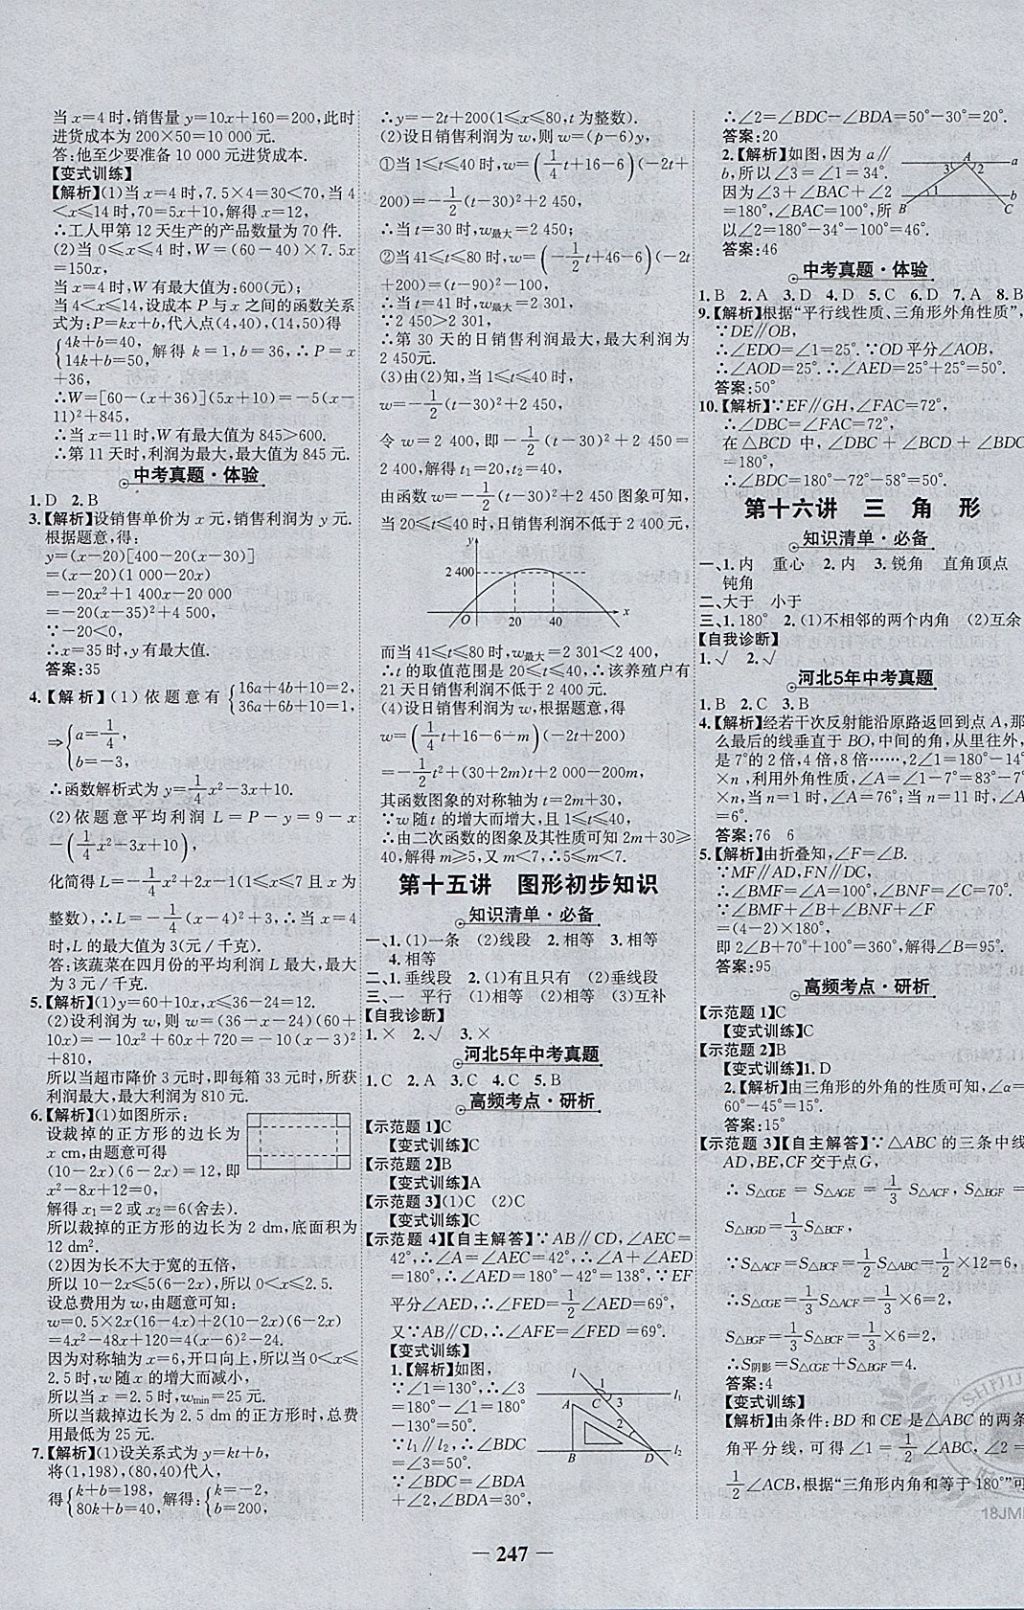 当x=4时,销售量y=10x+160=200,此时
进货成本为200×50=10 000元.
答:他至少要准备10 000元进货成本.
【变式训练】
【解析】(1)当x=4时,7.5×4=30<70,当4
<x≤14时,70=5x+10,解得x=12,
∴工人甲第12天生产的产品数量为70件.
(2)当0≤x≤4时,W=(60-40)×7.5x
=150x,
当x=4时,W有最大值为:600(元);
当4<x≤14,设成本P与x之间的函数关系
式为:P=kx+b,代入点(4,40),(14,50)得
{4k+b=40, 14k+b=50, 解得k=1,b=36,∴P=x
+36,
∴W=[60-(x+36)](5x+10)=-5(x-
11)²+845,
∴当x=11时,W有最大值为845>600.
∴第11天时,利润最大,最大值为845元.
中考真题·体验
1.D 2.B
3.【解析】设销售单价为x元,销售利润为y元.
根据题意,得:
y=(x-20)[400-20(x-30)]
=(x-20)(1 000-20x)
=-20x²+1 400x-20 000
=-20(x-35)²+4 500,
∵-20<0,
∴x=35时,y有最大值.
答案:35
4.【解析】(1)依题意有{16a+4b+10=2, 36a+6b+10=1,
⇒{a=1/4, b=-3,
∴函数解析式为y=1/4x²-3x+10.
(2)依题意平均利润L=P-y=9-x
-(1/4x²-3x+10),
化简得L=-1/4x²+2x-1(1≤x≤7且x为
整数),∴L=-1/4(x-4)²+3,∴当x=4
时,L的最大值为3(元/千克).
答:该蔬菜在四月份的平均利润L最大,最大
为3元/千克.
5.【解析】(1)y=60+10x,x≤36-24=12.
(2)设利润为w,则w=(36-x-24)(60+
10x)=-10x²+60x+720=-10(x-3)²
+810,
所以当超市降价3元时,即每箱33元时,所获
利润最大,最大利润为810元.
6.【解析】(1)如图所示:
设裁掉的正方形的边长为
x cm,由题意可得
(10-2x)(6-2x)=12,即
x²-8x+12=0,
解得x₁=2或x₂=6(舍去).
所以裁掉的正方形的边长为2 dm,底面积为
12 dm².
(2)因为长不大于宽的五倍,
所以10-2x≤5(6-2x),所以0<x≤2.5.
设总费用为w,由题意可知:
w=0.5×2x(16-4x)+2(10-2x)(6-2x)
=4x²-48x+120=4(x-6)²-24,
因为对称轴为x=6,开口向上,所以当0<x≤
2.5时,w随x的增大而减小,
所以当x=2.5时,w_min=25元,
所以当裁掉边长为2.5 dm的正方形时,总费
用最低为25元.
7.【解析】(1)设关系式为y=kt+b,
将(1,198),(80,40)代人,
得{k+b=198, 80k+b=40. 解得:{k=-2, b=200,
∴y=-2t+200(1≤x≤80,t为整数).
(2)设日销售利润为w,则w=(p-6)y,
①当1≤t≤40时,w=(1/4t+16-6)(-2t+
200)=-1/2(t-30)²+2 450,
∴当t=30时,w最大=2 450;
②当41≤t≤80时,w=(-1/2t+46-6)(-2t+
200)=(t-90)²-100,
∴当t=41时,w最大=2 301,
∵2 450>2 301,
∴第30天的日销售利润最大,最大利润为
2 450元.
(3)由(2)知当1≤t≤40时,
w=-1/2(t-30)²+2 450,
令w=2 400,即-1/2(t-30)²+2 450=
2 400,解得:t₁=20,t₂=40,
由函数w=-1/2(t-30)²+2 450图象可知,
当20≤t≤40时,日销售利润不低于2 400元,
2 400
O 20 40 x
而当41≤t≤80时,w最大=2 301<2 400,
∴t的取值范围是20≤t≤40,∴该养殖户有
21天日销售利润不低于2 400元.
(4)设日销售利润为w,根据题意,得
w=(1/4t+16-6-m)(-2t+200)
=-1/2t²+(30+2m)t+2 000-200m,
其函数图象的对称轴为t=2m+30,
∵w随t的增大而增大,且1≤t≤40,
∴由二次函数的图象及其性质可知2m+30≥
40,解得m≥5,又m<7,∴5≤m<7.
第十五讲 图形初步知识
知识清单·必备
一、1.(1)一条 (2)线段 2.相等 3.相等
4.相等
二、1.垂线段 2.(1)有且只有 (2)垂线段
三、一 平行 (1)相等 (2)相等 (3)互补
【自我诊断】
1.× 2.√ 3.×
河北5年中考真题
1.C 2.A 3.C 4.C 5.B
高频考点·研析
【示范题1】C
【变式训练】C
【示范题2】B
【变式训练】A
【示范题3】(1)C (2)C
【变式训练】C
【示范题4】【自主解答】∵AB∥CD,∠AEC=
42°,∴∠A=∠AEC=42°,∴∠A+∠AED
=180°,∴∠AED=180°-42°=138°,∵EF
平分∠AED,∴∠FED=1/2∠AED=69°,
又∵AB∥CD,∴∠AFE=∠FED=69°.
【变式训练】
1.【解析】如图,
∵∠1=130°,∴∠3
=180°-∠1=180°
-130°=50°.
∵l₁∥l₂,∴∠BDC
=∠3=50°.
∵∠BDC=∠BDA
+∠2,∠BDA=30°,
1 l₁
A C 3
2
B D l₂
∴∠2=∠BDC-∠BDA=50°-30°=20°.
答案:20
2.【解析】如图,因为a∥
b,所以∠3=∠1=34°.
因为∠3+∠BAC+∠2
=180°,∠BAC=100°,所
以∠2=180°-34°-100°=46°.
答案:46
A a
3 2
1
B C b
中考真题·体验
1.B 2.A 3.D 4.D 5.C 6.D 7.A 8.B
9.【解析】根据“平行线性质、三角形外角性质”,
∵DE∥OB,
∴∠EDO=∠1=25°.∵OD平分∠AOB,
∴∠AOD=25°.∴∠AED=25°+25°=50°.
答案:50°
10.【解析】∵EF∥GH,∠FAC=72°,
∴∠DBC=∠FAC=72°,
在△BCD中,∠DBC+∠BCD+∠BDC
=180°,
∴∠BDC=180°-72°-58°=50°.
第十六讲 三 角 形
知识清单·必备
一、1.内 重心 2.内 3.锐角 直角顶点
钝角
二、大于 小于
三、1.180° 2.(1)不相邻的两个内角 (2)互余
【自我诊断】
1.√ 2.√
河北5年中考真题
1.B 2.C 3.B
4.【解析】经若干次反射能沿原路返回到点A,那
么最后的线垂直于BO,中间的角,从里往外,
是7°的2倍,4倍,8倍……,2∠1=180°-14°
×n,利用外角性质,∠A=∠1-7°=83°-7°
×n,当n=1时,∠A=76°;当n=11时,∠A
=6°.
答案:76 6
5.【解析】由折叠知,∠F=∠B.
∵MF∥AD,FN∥DC,
∴∠BMF=∠A=100°,∠BNF=∠C=70°.
∵∠BMF+∠B+∠BNF+∠F
=(4-2)×180°,
即2∠B+70°+100°=360°,解得∠B=95°.
答案:95
高频考点·研析
【示范题1】C
【变式训练】C
【示范题2】B
【变式训练】1.D
2.【解析】由三角形的外角的性质可知,∠α=
60°-45°=15°.
答案:15°
【示范题3】【自主解答】∵△ABC的三条中线
AD,BE,CF交于点G,
∴S△CGE=S△AGE=1/3S△ACF,S△BGF=
S△BGD=1/3S△BCF,
∵S△ACF=S△BCF=1/2S△ABC=1/2×12=6,
∴S△CGE=1/3S△ACF=1/3×6=2,
S△BGF=1/3S△BCF=1/3×6=2,
∴S阴影=S△CGE+S△BGF=4.
答案:4
【变式训练】
【解析】由条件:BD和CE是△ABC的两条
角平分线,可得∠1=1/2∠ABC,∠2=
1/2∠ACB,根据“三角形内角和等于180°”可
— 247 —